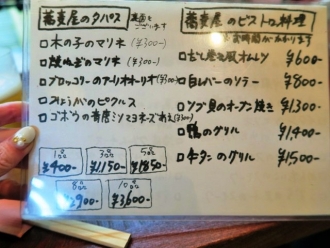 蕎麦屋のタパス
□木の子のマリネ (¥300-)
□焼ねぎのマリネ (¥300-)
□ブロッコリーのアーリオオーリオ(¥300-)
□みょうがのピクルス
□ゴボウの蕎麦ミソマヨネーズあえ(¥300-)
1品 ¥400-
3品 ¥1150-
5品 ¥1850-
8品 ¥2900-
10品 ¥3600-
蕎麦屋のビストロ料理
お時間がかかります
□だし巻き風オムレツ ¥600-
□白レバーのソテー ¥800-
□ツブ貝のオーブン焼き ¥1,300-
□鴨のグリル ¥1,400-
□牛タンのグリル ¥1,500-